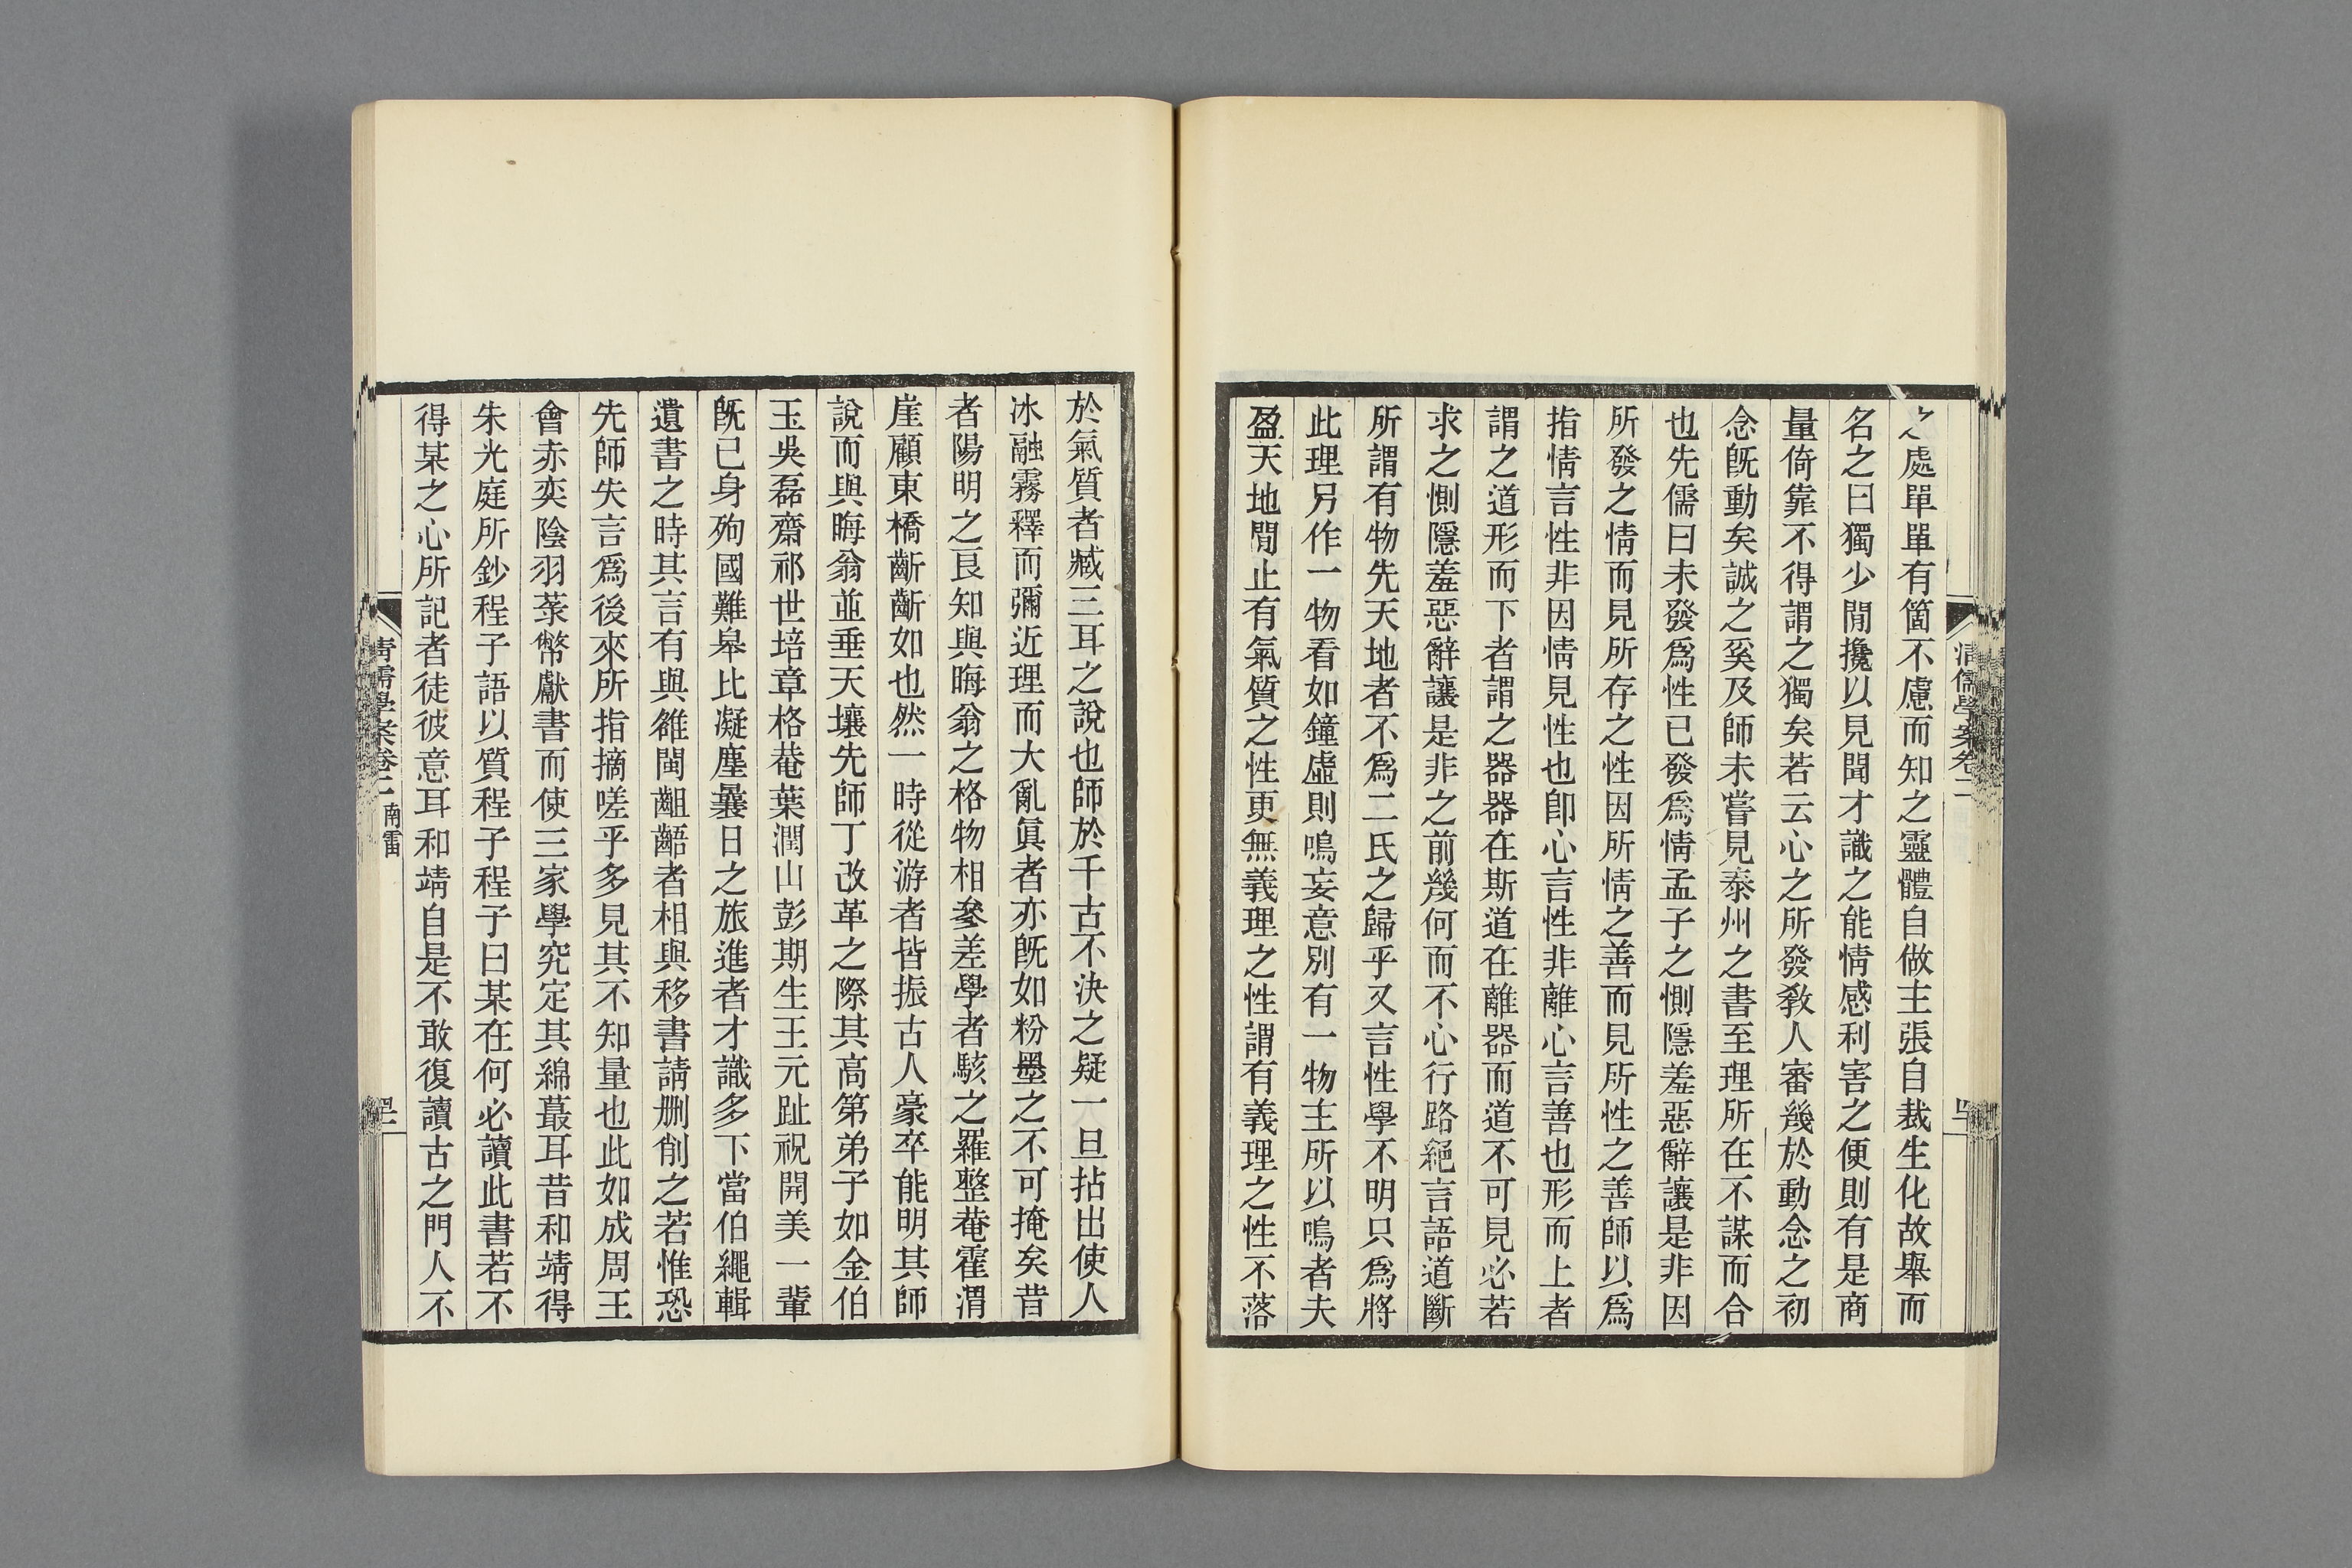 之處單單有箇不慮而知之靈體自做主張自裁生化故舉而
名之曰獨少閒攙以見聞才識之能情感利害之便則有是商
量倚靠不得謂之獨矣若云心之所發敎人審幾於動念之初
念旣動矣誠之奚及師未嘗見泰州之書至理所在不謀而合
也先儒曰未發爲性已發爲情孟子之惻隱羞惡辭讓是非因
所發之情而見所存之性因所情之善而見所性之善師以爲
指情言性非因情見性也卽心言性非離心言善也形而上者
謂之道形而下者謂之器器在斯道在離器而道不可見必若
求之惻隱羞惡辭讓是非之前幾何而不心行路絕言語道斷
所謂有物先天地者不爲二氏之歸乎又言性學不明只爲將
此理另作一物看如鐘虛則鳴妄意別有一物主所以鳴者夫
盈天地閒止有氣質之性更無義理之性謂有義理之性不落
清儒學案卷二
於氣質者臧三耳之說也師於千古不決之疑一旦拈出使人
冰融霧釋而彌近理而大亂眞者亦旣如粉墨之不可掩矣昔
者陽明之良知與晦翁之格物相參差學者駭之羅整菴霍渭
崖顧東橋齗齗如也然一時從游者皆振古人豪卒能明其師
說而與晦翁並垂天壤先師丁改革之際其高第弟子如金伯
玉吳磊齋祁世培章格菴葉潤山彭期生王元趾祝開美一輩
旣已身殉國難皋比凝塵曩日之旅進者才識多下當伯繩輯
遺書之時其言有與雒閩齟齬者相與移書請刪削之若惟恐
先師失言爲後來所指摘嗟乎多見其不知量也此如成周王
會赤奕陰羽菉幣獻書而使三家學究定其綿蕞耳昔和靖得
朱光庭所鈔程子語以質程子程子曰某在何必讀此書若不
得某之心所記者徒彼意耳和靖自是不敢復讀古之門人不
清儒學案卷二 南雷